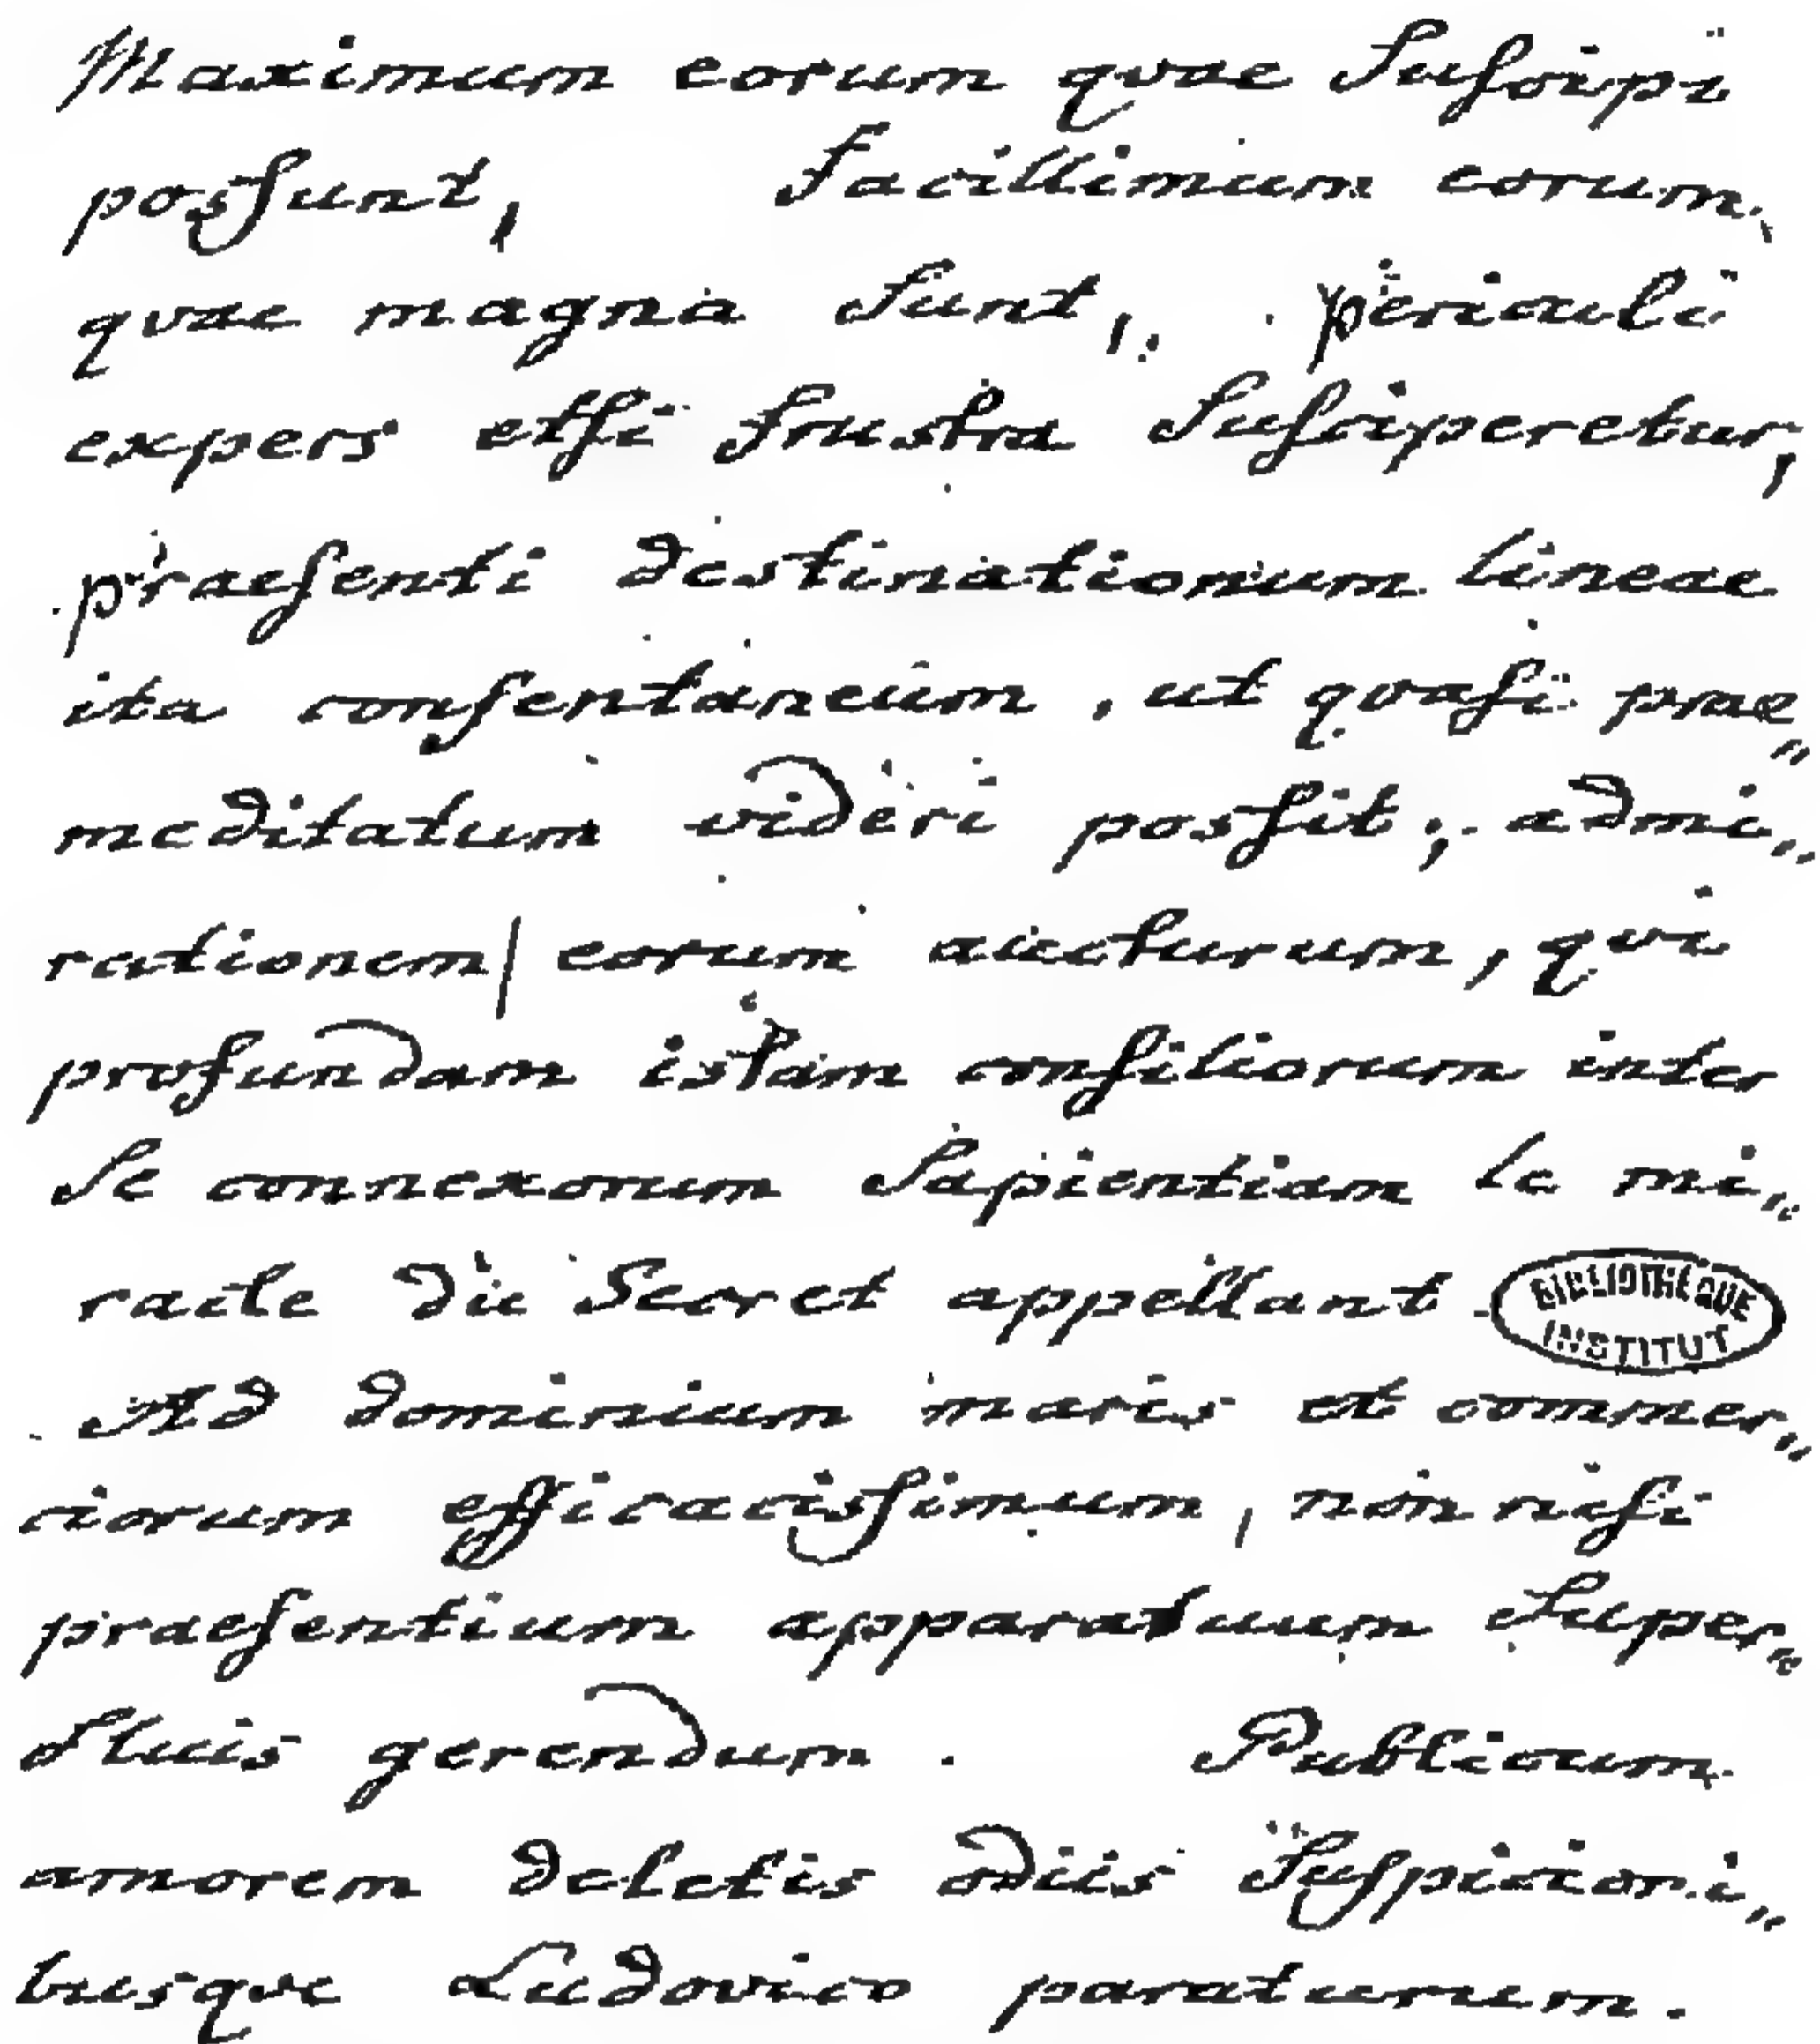 Maximum eorum quae Suscipi
possunt, facillimum eorum,
quae magna Sunt, periculi
expers etsi frustra Susciperetur,
praesenti destinationum lineae
ita consentaneum, ut quasi prae„
meditatum videri possit; admi„
rationem eorum aucturum, qui
profundam istam consiliorum inter
Se connexorum Sapientiam le mi„
racle du Secret appellant.
BIBLIOTHEQUE
INSTITUT
Ad dominium maris et commer„
ciorum efficacissimum, non nisi
praesentium apparatuum Super„
fluis gerendum. Publicum
amorem deletis odiis Suspicioni„
busque Ludovico paraturum.